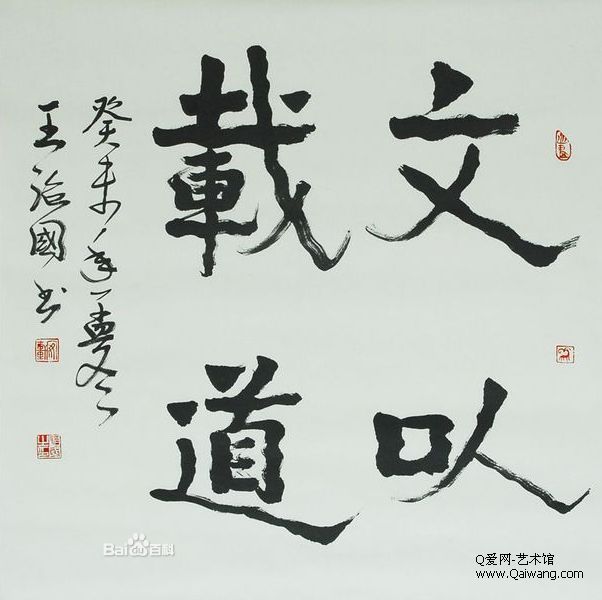 文以
載道
癸未年
王治國书
Bai百科
Q爱网-艺术馆
www.Qaiwang.com